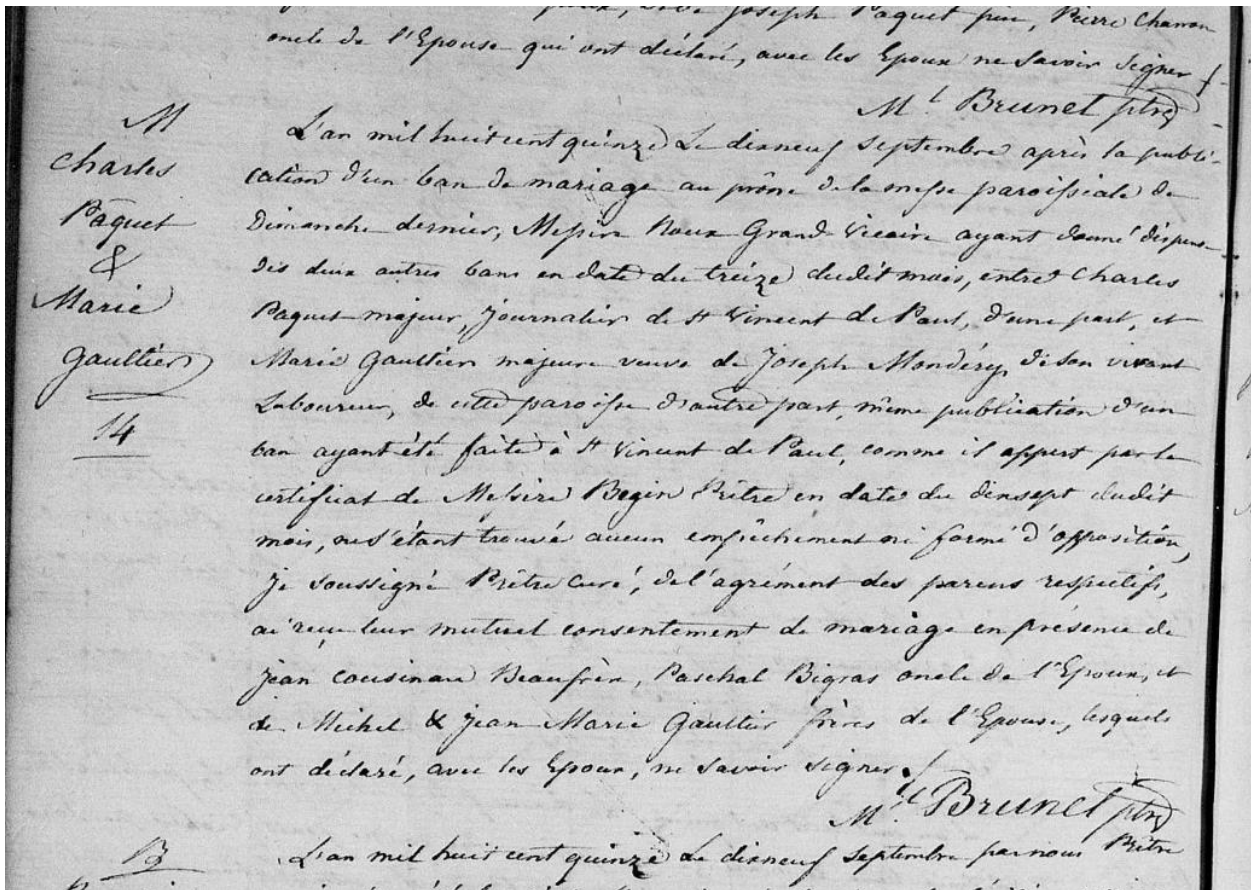 Joseph Paquet père, Pierre Charron
oncle de l'Epouse qui ont déclaré, avec les Epoux ne savoir signer
M.l Brunet ptre
M
Charles
Paquet
&
Marie
Gaultier
14
L'an mil huit cent quinze Le dixneuf Septembre après la publi-
cation d'un ban de mariage au prône de la messe paroissiale de
Dimanche dernier, Messire Roux Grand Vicaire ayant donné dispense
des deux autres bans en date du treize dudit mois, entre Charles
Paquet majeur, journalier de St Vincent de Paul, d'une part, et
Marie Gaultier majeure veuve de Joseph Mondéry, de son vivant
Laboureur, de cette paroisse d'autre part, même publication d'un
ban ayant été faite à St Vincent de Paul, comme il appert par le
certificat de Messire Begin Prêtre en date du dixsept dudit
mois, ne s'étant trouvé aucun empêchement ni formé d'opposition,
Je soussigné Prêtre Curé, de l'agrément des parens respectifs,
ai reçu leur mutuel consentement de mariage en présence de
Jean Cousineau Beaufrère, Paschal Bigras oncle de l'Epoux, et
de Michel & Jean Marie Gaultier frères de l'Epouse, lesquels
ont déclaré, avec les Epoux, ne savoir signer
M.l Brunet ptre
B
L'an mil huit cent quinze Le dixneuf Septembre par nous Prêtre